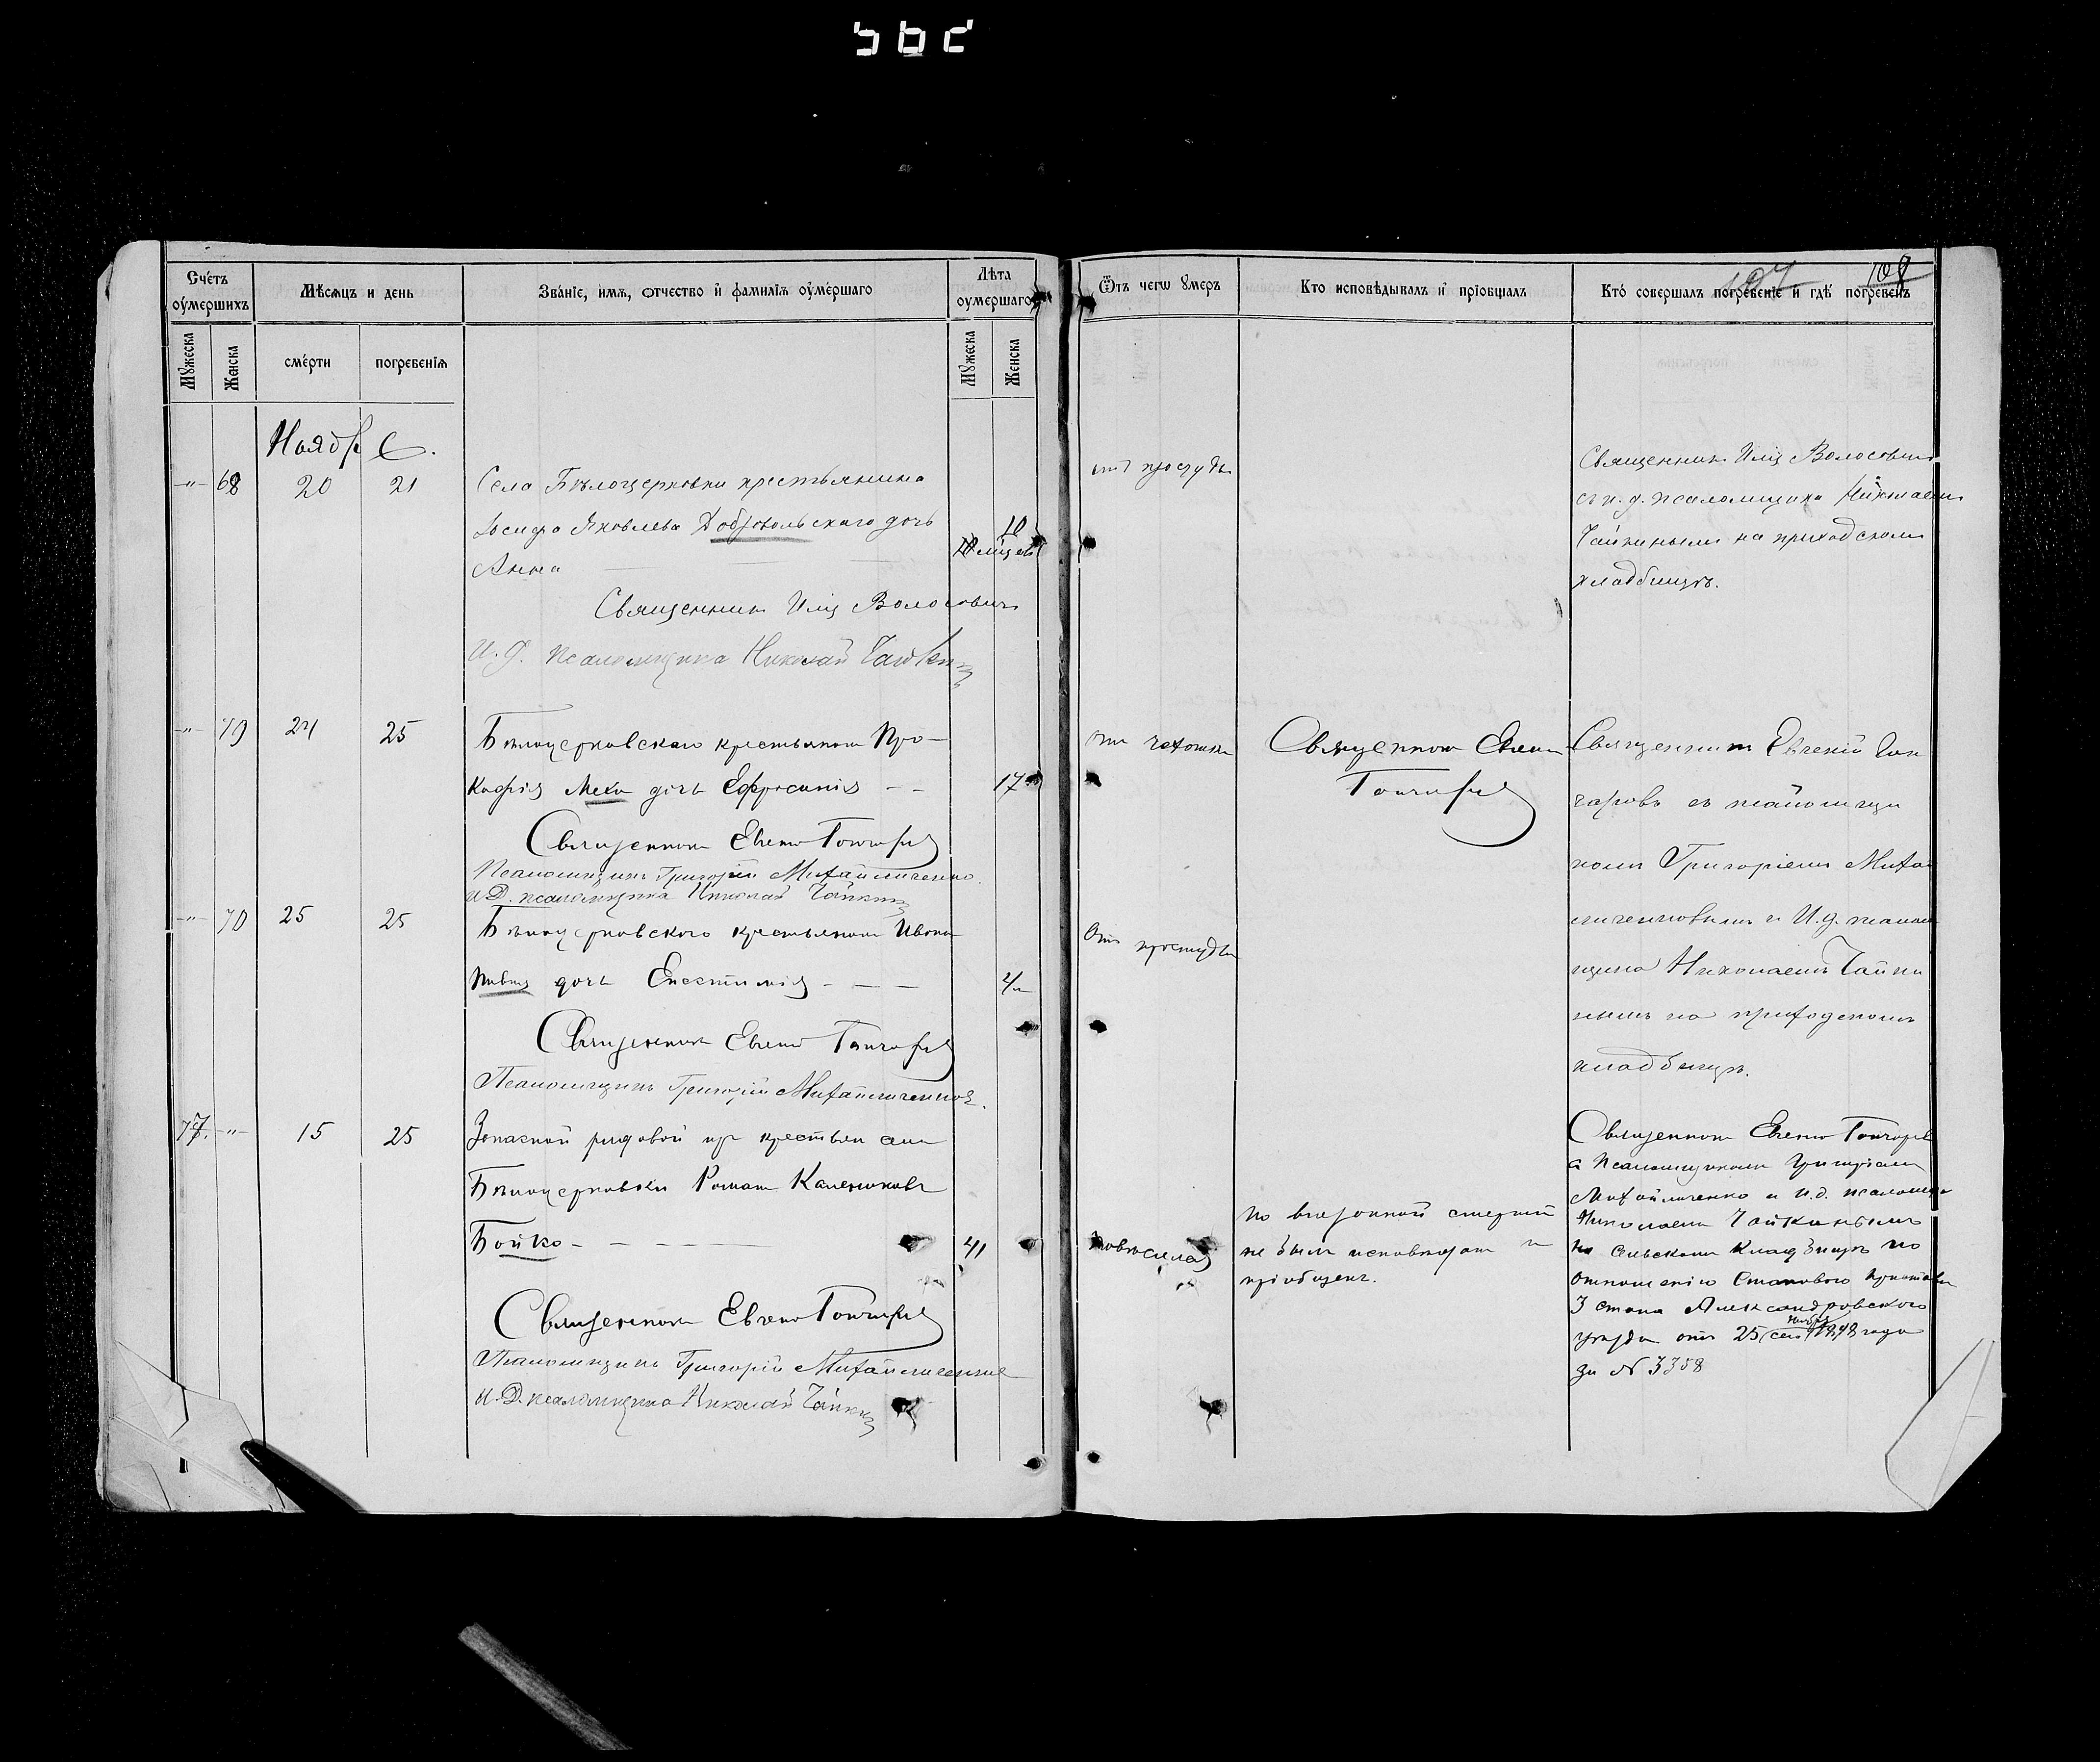 Счетъ оумершихъ
Мѣсяцъ и день
Званіе, имя, отчество и фамилія оумершаго
Лѣта оумершаго
Мужеска
Женска
смерти
погребенія
Мужеска
Женска
Отъ чего умеръ
Кто исповѣдывалъ и пріобщалъ
Кто совершалъ погребеніе и гдѣ погребенъ
107
108
Ноябрь
-"- 68 20 21 Села Бѣлоцерковки крестьянина
Іосифа Яковлева Добровольскаго дочь
Анна
10
мѣсяцев
отъ простуды
Священникъ Илія Волосовичъ
съ и. д. псаломщика Николаемъ
Чайкинымъ на приходскомъ
кладбищѣ.
Священникъ Илія Волосовичъ
И. д. псаломщика Николай Чайкинъ
-"- 79 24 25 Бѣлоцерковскаго крестьянина Про-
кофія Меха дочь Ефросинія - -
17
отъ чахотки
Священникъ Евгеній
Гончаровъ
Священникъ Евгеній Гон
чаровъ съ псаломщи
комъ Григоріемъ Михай
личенковымъ и И. д. псалом
щика Николаемъ Чайки
нымъ на приходскомъ
кладбищѣ.
Священникъ Евгеній Гончаровъ
Псаломщикъ Григорій Михайличенко.
И. Д. псаломщика Николай Чайкинъ
-"- 70 25 25 Бѣлоцерковскаго крестьянина Ивана
дочь - - -
Отъ простуды
Священникъ Евгеній Гончаровъ
Псаломщикъ Григорій Михайличенко.
77. -"- 15 25 Запасной рядовой изъ крестьянъ села
Бѣлоцерковки Романъ Калениковъ
Бойко - - - -
41
По внезапной смерти
не былъ исповѣданъ и
пріобщенъ.
Священникъ Евгеній Гончаровъ
съ Псаломщикомъ Григоріемъ
Михайличенко и и. д. псаломщика
Николаемъ Чайкинымъ
на Сельскомъ Кладбищѣ по
отношенію Становаго Пристава
3 стана Александровскаго
уѣзда отъ 25 1898 года
за № 3358
Священникъ Евгеній Гончаровъ
Псаломщикъ Григорій Михайличенко
И. Д. псаломщика Николай Чайкинъ